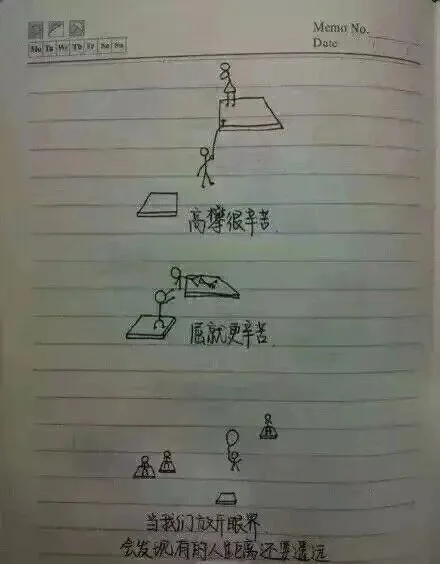 Memo No.
Date
Mo Tu We Th Fr Sa Su
高攀很辛苦
屈就更辛苦
当我们放开眼界
会发现有的人距离还要遥远